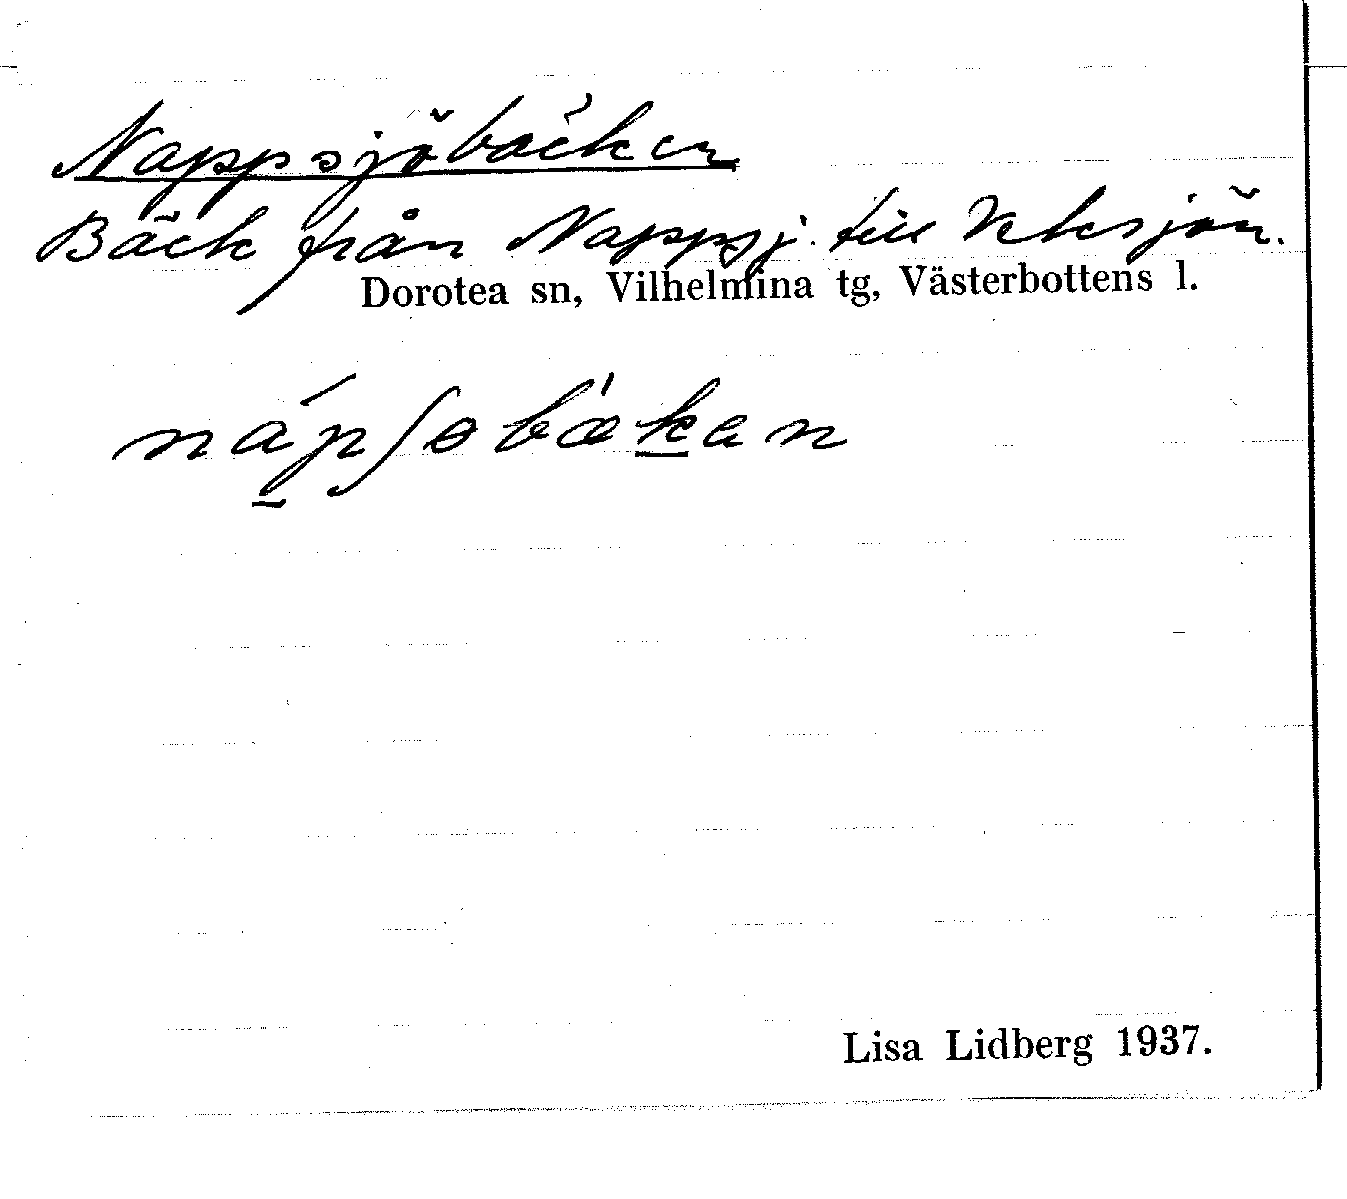 Nappsjöbäcken
Bäck från Nappsj. till Veksjön.
Dorotea sn, Vilhelmina tg, Västerbottens l.
nápʃobækan
Lisa Lidberg 1937.